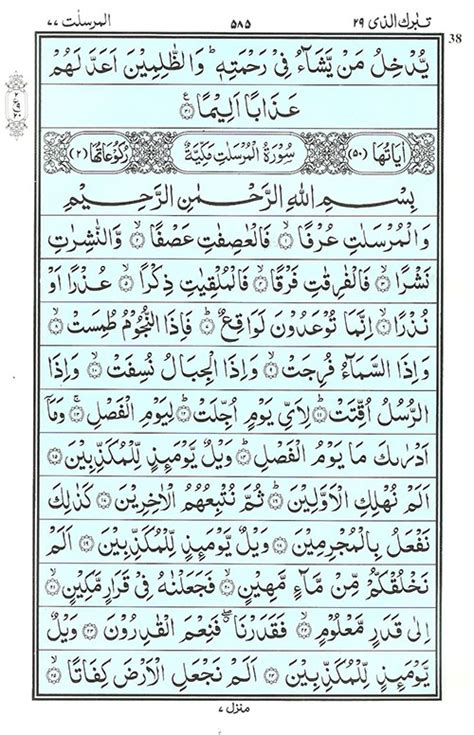 تبٰرك الذى ٢٩ ٥٨٥ المرسلٰت ٧٧
38
يُّدْخِلُ مَنْ يَّشَآءُ فِىْ رَحْمَتِهٖ ؕ وَالظّٰلِمِيْنَ اَعَدَّ لَهُمْ
عَذَابًا اَلِيْمًا ۝٣١
اٰيَاتُهَا (٥٠) سُوْرَةُ الْمُرْسَلٰتِ مَكِّيَّةٌ رُكُوْعَاتُهَا (٢)
بِسْمِ اللّٰهِ الرَّحْمٰنِ الرَّحِيْمِ
وَالْمُرْسَلٰتِ عُرْفًا ۝١ فَالْعٰصِفٰتِ عَصْفًا ۝٢ وَّالنّٰشِرٰتِ
نَشْرًا ۝٣ فَالْفٰرِقٰتِ فَرْقًا ۝٤ فَالْمُلْقِيٰتِ ذِكْرًا ۝٥ عُذْرًا اَوْ
نُذْرًا ۝٦ اِنَّمَا تُوْعَدُوْنَ لَوَاقِعٌ ۝٧ فَاِذَا النُّجُوْمُ طُمِسَتْ ۝٨
وَاِذَا السَّمَآءُ فُرِجَتْ ۝٩ وَاِذَا الْجِبَالُ نُسِفَتْ ۝١٠ وَاِذَا
الرُّسُلُ اُقِّتَتْ ۝١١ لِاَىِّ يَوْمٍ اُجِّلَتْ ۝١٢ لِيَوْمِ الْفَصْلِ ۝١٣ وَمَاۤ
اَدْرٰىكَ مَا يَوْمُ الْفَصْلِ ۝١٤ وَيْلٌ يَّوْمَئِذٍ لِّلْمُكَذِّبِيْنَ ۝١٥
اَلَمْ نُهْلِكِ الْاَوَّلِيْنَ ۝١٦ ثُمَّ نُتْبِعُهُمُ الْاٰخِرِيْنَ ۝١٧ كَذٰلِكَ
نَفْعَلُ بِالْمُجْرِمِيْنَ ۝١٨ وَيْلٌ يَّوْمَئِذٍ لِّلْمُكَذِّبِيْنَ ۝١٩ اَلَمْ
نَخْلُقْكُّمْ مِّنْ مَّآءٍ مَّهِيْنٍ ۝٢٠ فَجَعَلْنٰهُ فِىْ قَرَارٍ مَّكِيْنٍ ۝٢١
اِلٰى قَدَرٍ مَّعْلُوْمٍ ۝٢٢ فَقَدَرْنَا ۖ فَنِعْمَ الْقٰدِرُوْنَ ۝٢٣ وَيْلٌ
يَّوْمَئِذٍ لِّلْمُكَذِّبِيْنَ ۝٢٤ اَلَمْ نَجْعَلِ الْاَرْضَ كِفَاتًا ۝٢٥
منزل ٧